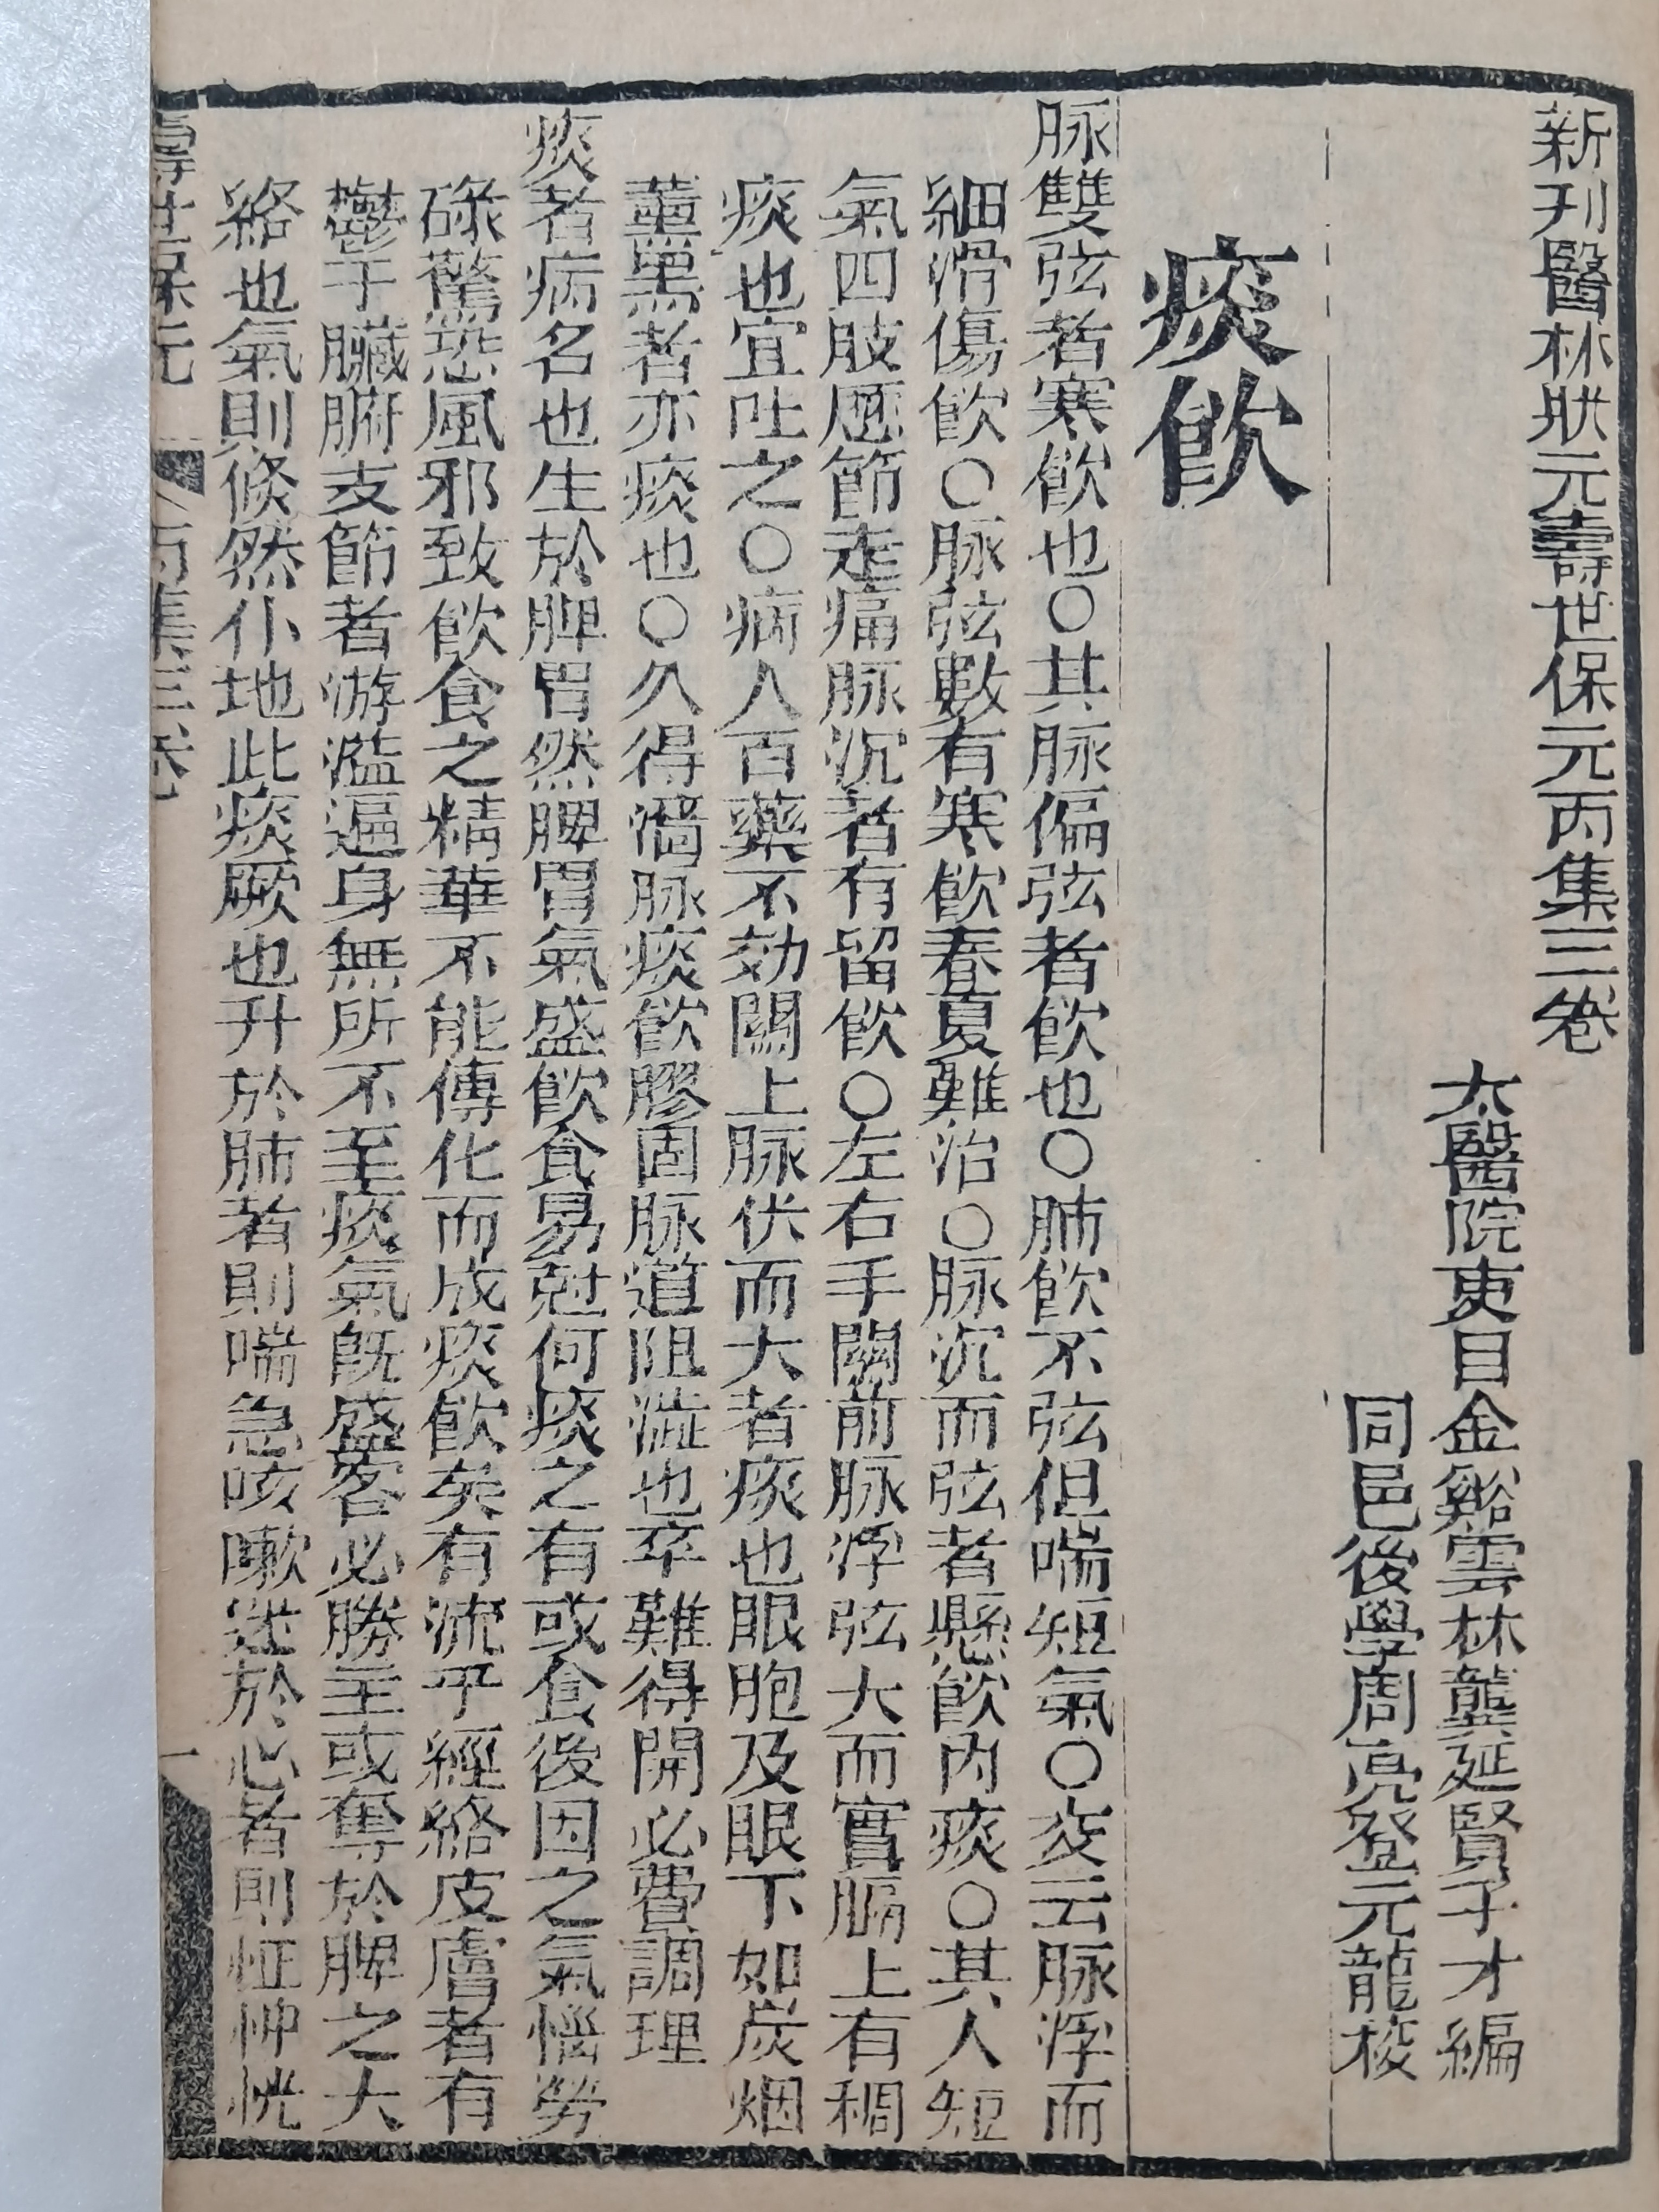 新刊醫林狀元壽世保元丙集三卷
太醫院吏目金谿雲林龔延賢子才編
同邑後學周亮登元龍梭
痰飲
脉雙弦者寒飲也○其脉偏弦者飲也○肺飲不弦但喘短氣○又云脉浮而
細滑傷飲○脉弦數有寒飲春夏難治○脉沉而弦者懸飲內痰○其人短
氣四肢歷節走痛脉沉者有留飲○左右手關前脉浮弦大而實膈上有稠
痰也宜吐之○病人百藥不効關上脉伏而大者痰也眼胞及眼下如炭烟
薰黑者亦痰也○久得濇脉痰飲膠固脉道阻澁也卒難得開必費調理
痰者病名也生於脾胃然脾胃氣盛飲食易尅何痰之有或食後因之氣惱勞
碌驚恐風邪致飲食之精華不能傳化而成痰飲矣有流于經絡皮膚者有
鬱于臟腑支節者游溢遍身無所不至痰氣既盛客必勝主或奪於脾之大
絡也氣則倐然仆地此痰厥也升於肺者則喘急咳嗽迷於心者則怔忡恍
壽世保元 丙集三卷 一